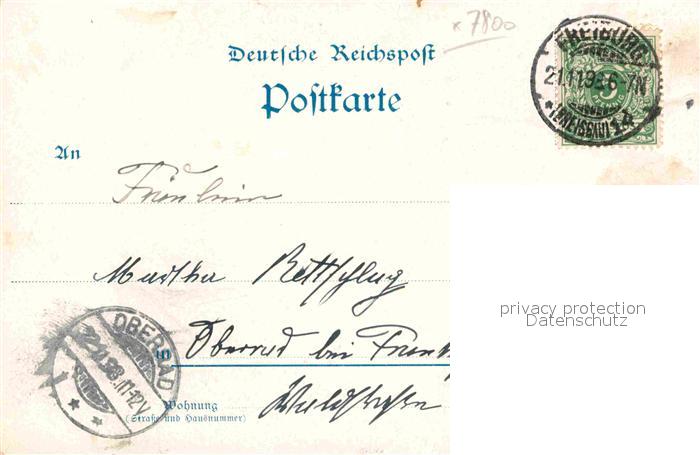 x 7800
Deutsche Reichspost
Postkarte
FREIBURG
21.11.98.6-7N
An
Fräulein
Martha
privacy protection
Datenschutz
OBERRAD
22.11.98.11-12V
in Oberrad bei
Wohnung
(Straße und Hausnummer)